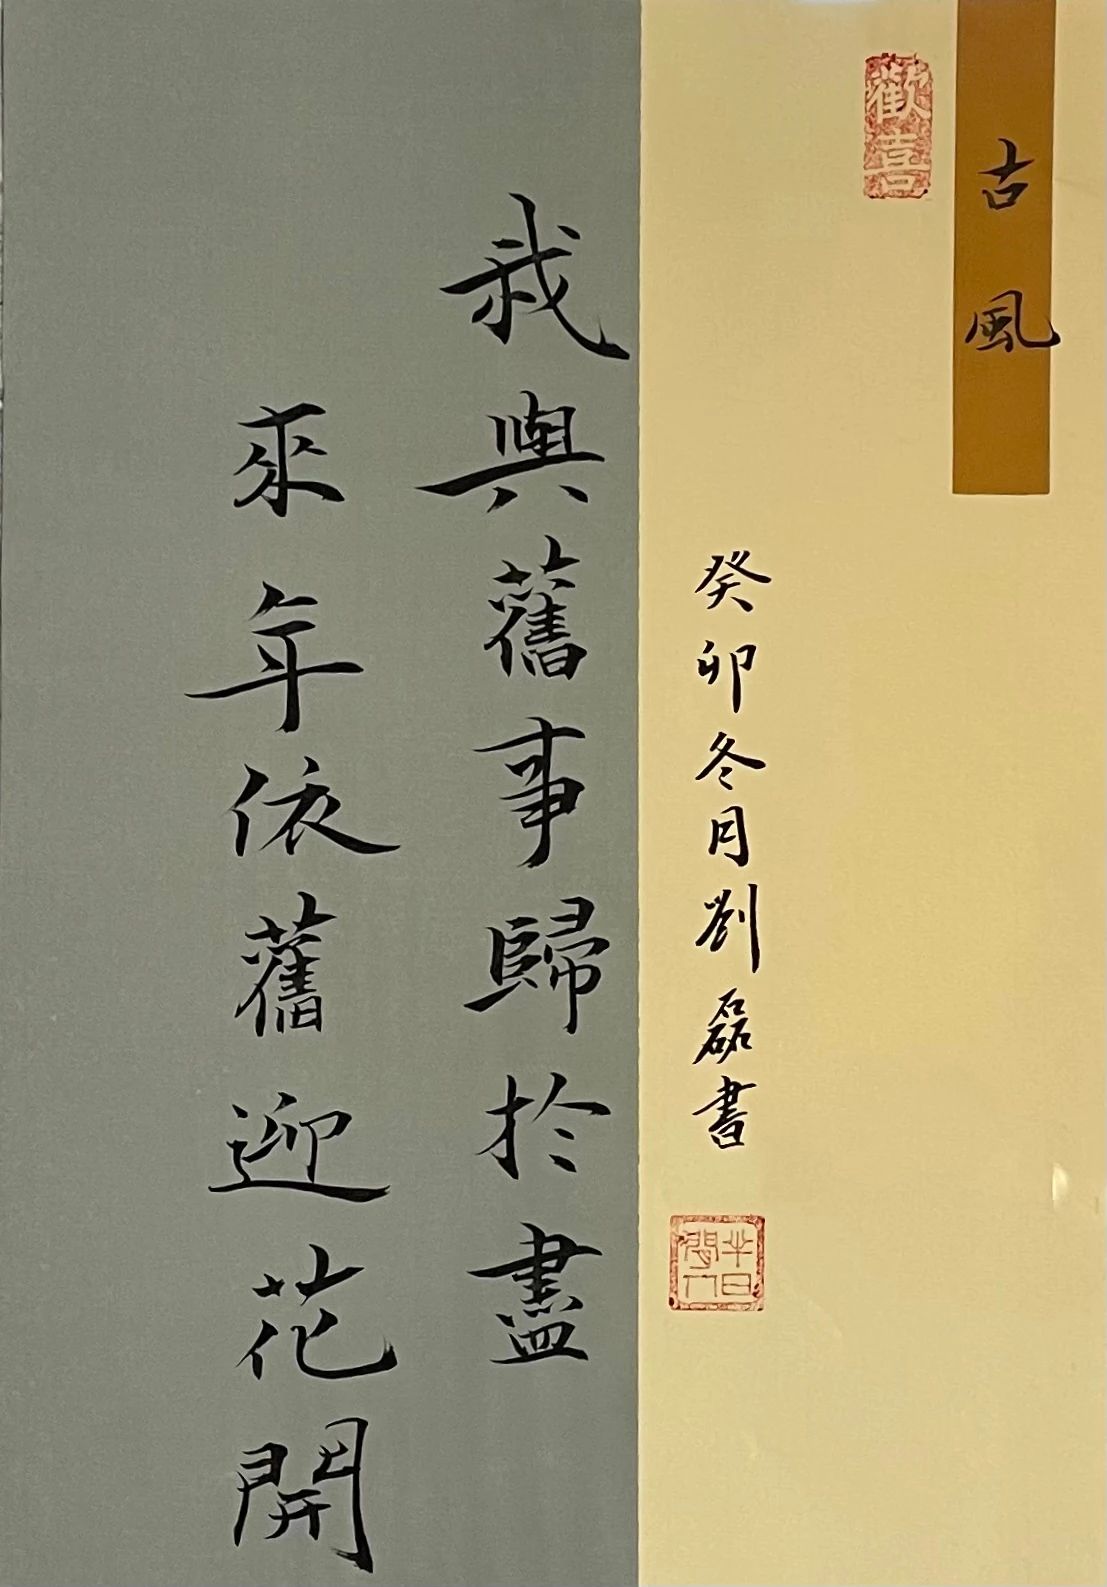 古風
歡喜
癸卯冬月劉磊書
半日閒人
我與舊事歸於盡
來年依舊迎花開